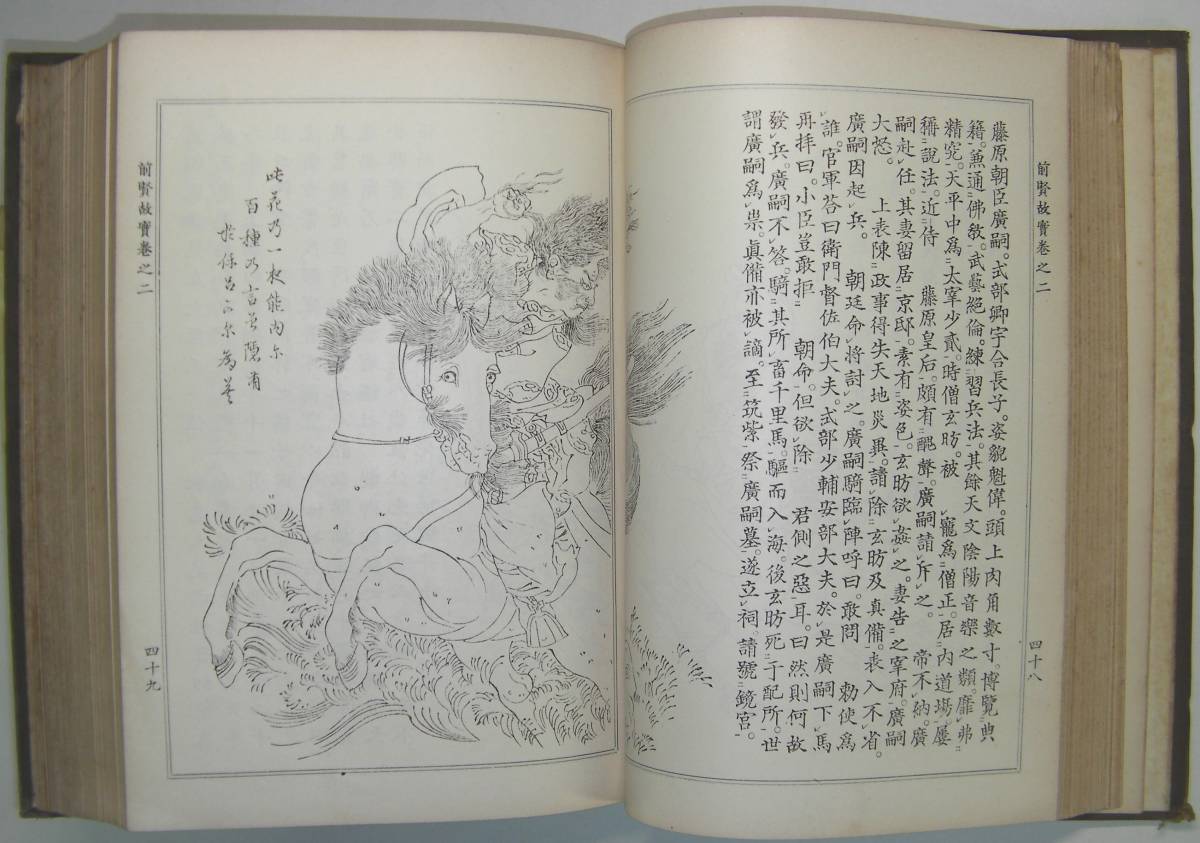 前賢故實卷之二
四十八
藤原朝臣廣嗣。式部卿宇合長子。姿貌魁偉。頭上肉角數寸。博覽典
籍。兼通佛敎。武藝絕倫。練習兵法。其餘天文陰陽音樂之類。靡弗
精究。天平中爲太宰少貳。時僧玄昉。被 寵爲僧正。居內道場。屢
稱說法。近侍 藤原皇后。頗有醜聲。廣嗣請斥之。 帝不納。廣
嗣赴任。其妻留居京邸。素有姿色。玄昉欲姦之。妻告之宰府。廣嗣
大怒。 上表陳政事得失天地災異。請除玄昉及眞備。表入不省。
廣嗣因起兵。 朝廷命將討之。廣嗣騎臨陣呼曰。敢問 勅使爲
誰。官軍荅曰衛門督佐伯大夫。式部少輔安部大夫。於是廣嗣下馬
再拝曰。小臣豈敢拒 朝命。但欲除 君側之惡耳。曰然則何故
發兵。廣嗣不答。騎其所畜千里馬。驅而入海。後玄昉死于配所。世
謂廣嗣爲祟。眞備亦被謫。至筑紫祭廣嗣墓。遂立祠。請號鏡宮。
此花乃一枝能內尓
百種乃言曾隱有
於保呂可尔爲莫
前賢故實卷之二
四十九